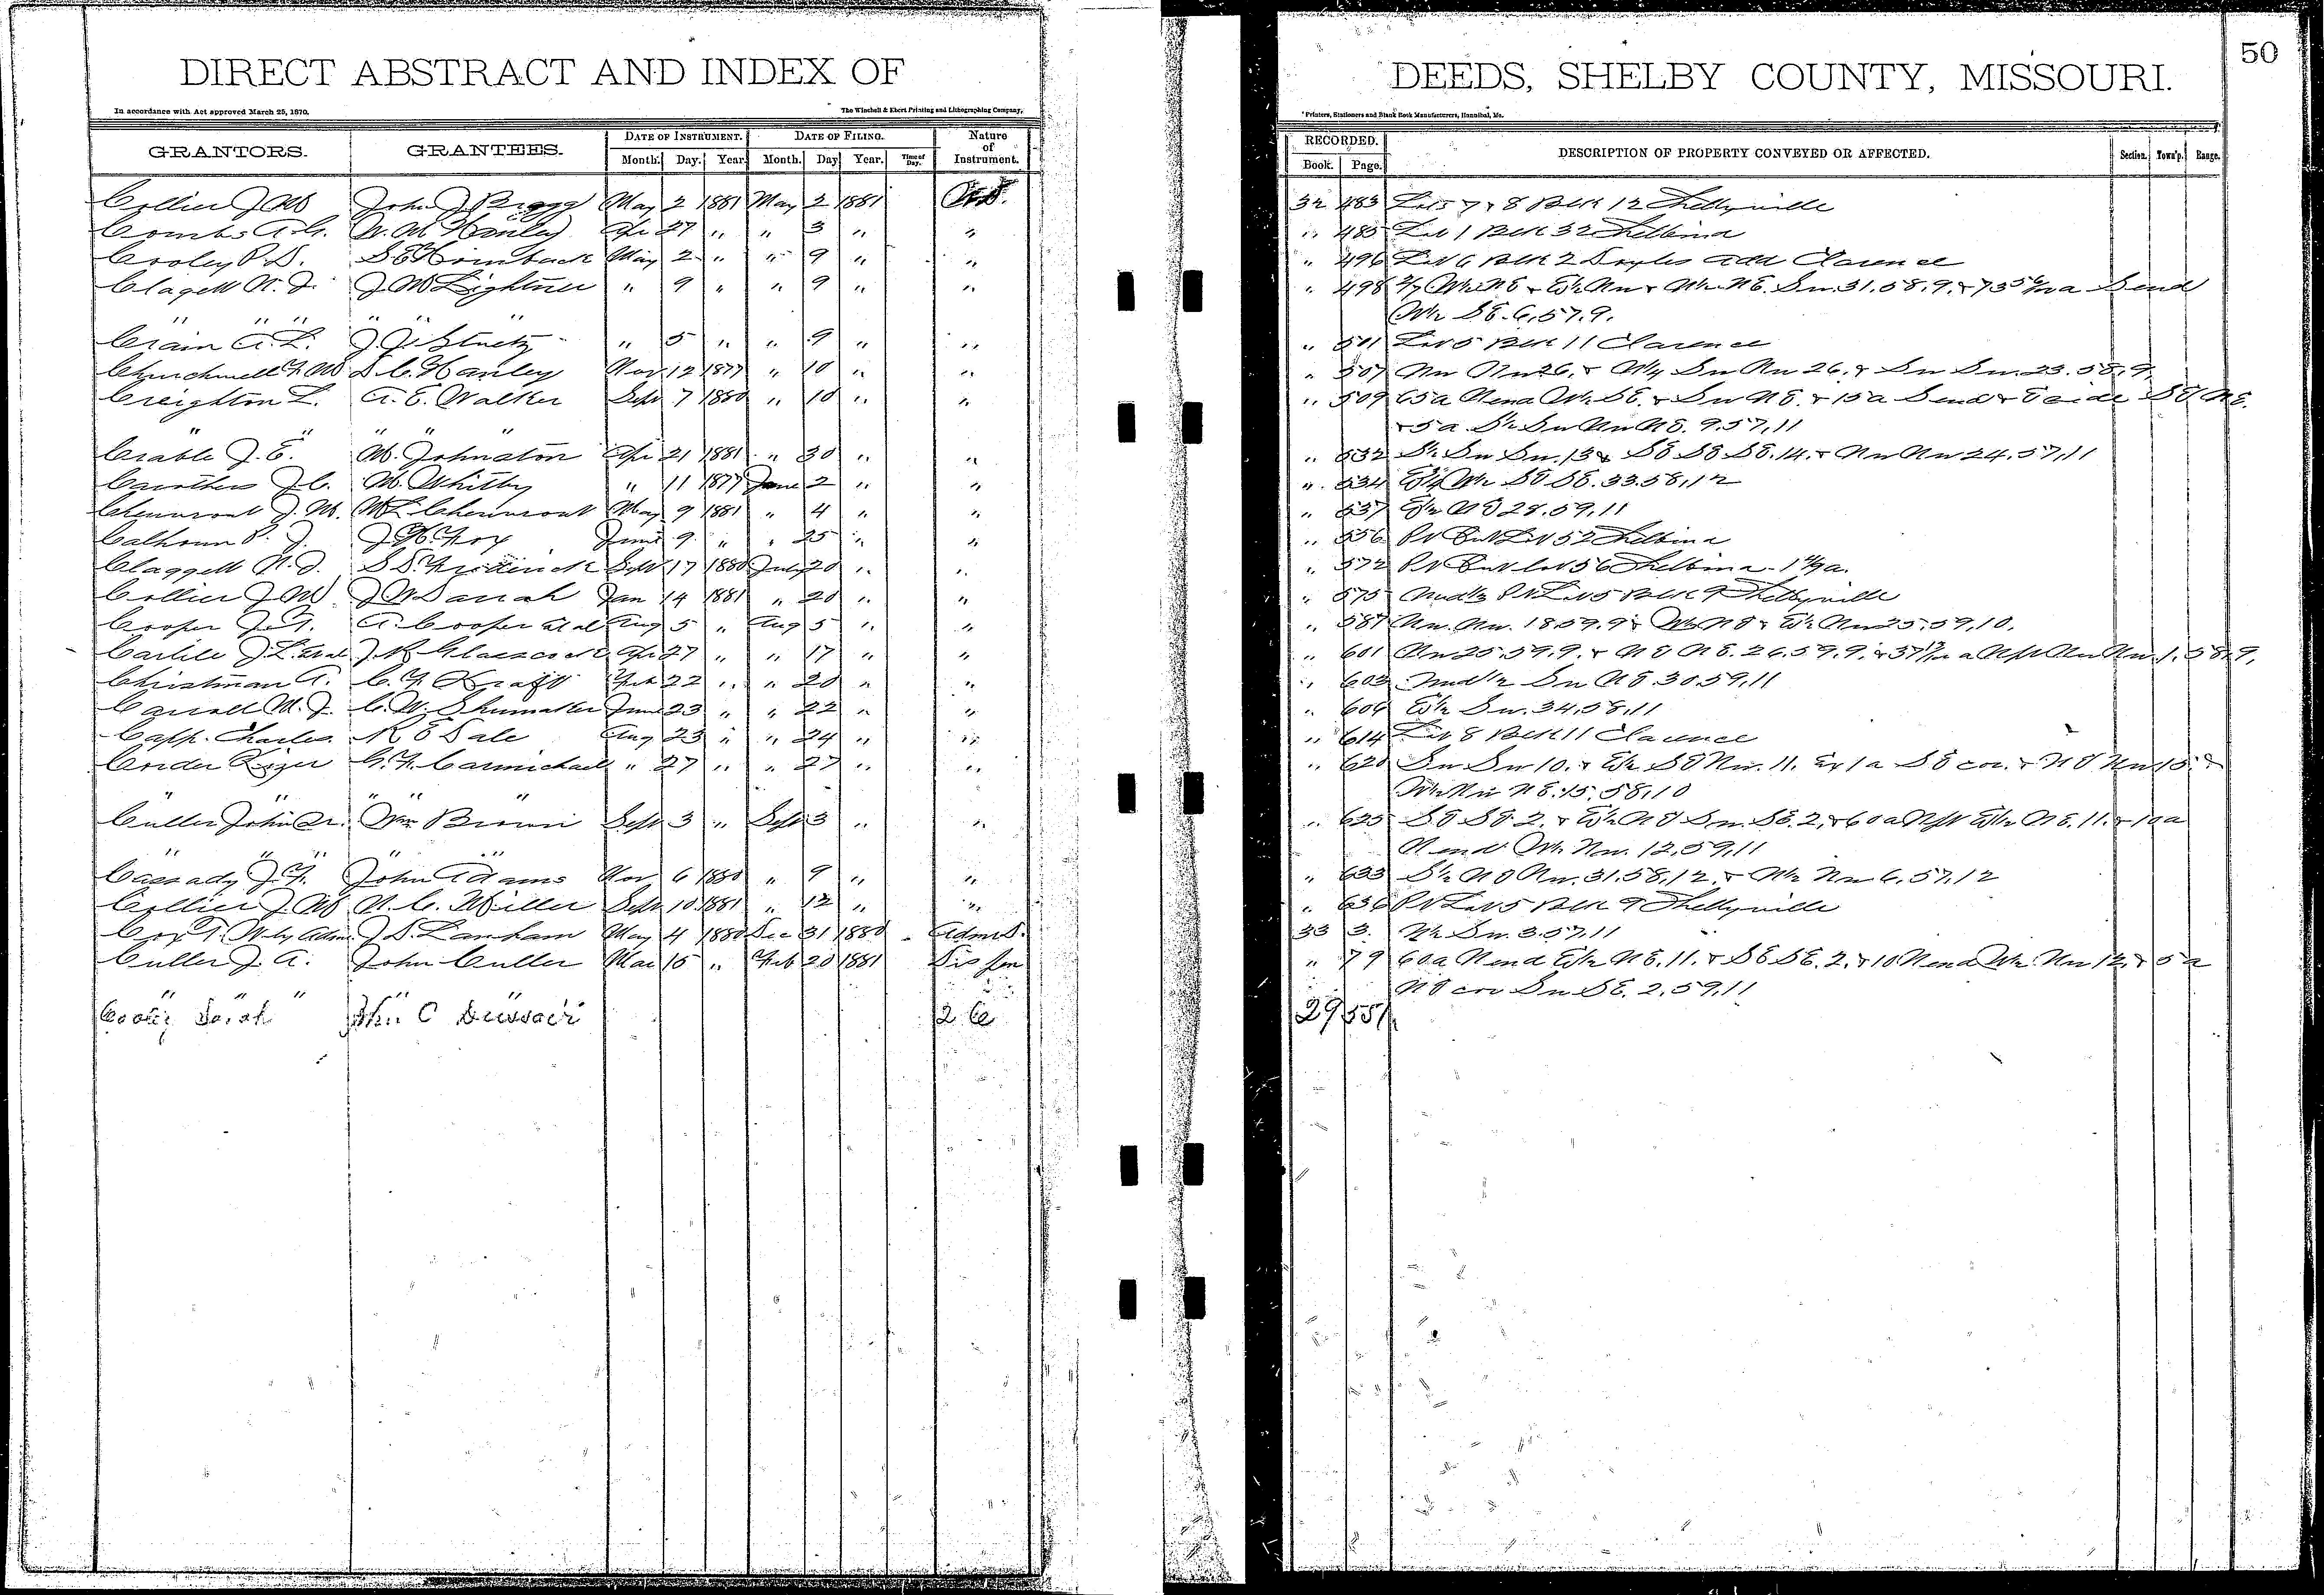 50
DIRECT ABSTRACT AND INDEX OF DEEDS, SHELBY COUNTY, MISSOURI.
In accordance with Act approved March 25, 1870. The Winchell & Ebert Printing and Lithographing Company, Printers, Stationers and Blank Book Manufacturers, Hannibal, Mo.
GRANTORS. GRANTEES. DATE OF INSTRUMENT. DATE OF FILING. Nature of Instrument. RECORDED. DESCRIPTION OF PROPERTY CONVEYED OR AFFECTED. Section. Town'p. Range.
Month. Day. Year. Month. Day Year. Time of Day. Book. Page.
Collier J M John J Bragg May 2 1881 May 2 1881 32 483 Lots 7 & 8 Blk 12 Shelbyville
Combs A. G. W. M. Hanley Apr 27 " " 3 " " " 485 Lot 1 Blk 32 Shelbina
Cooley P. S. S E Hornback May 2 " " 9 " " " 496 Lot 6 Blk 2 Doyles Add Clarence
Clagett N. J. J M Lightner " 9 " " 9 " " " 498 W½ NE & E½ Nw & W½ NE. Sw. 31.58.9. & a S end
" " " " " " W½ SE. 6.57.9.
Crain A. L. J. J. Stuetz " 5 " " 9 " " " 501 Lot 5 Blk 11 Clarence
Churchwell D. C. Hanley Nov 12 1877 " 10 " " " 507 Nw Nw 26. & Sw Nw 26. & Sw Sw. 23.58.9.
Creighton L. A. E. Walker Sept 7 1880 " 10 " " " 509 65a N end W½ SE. & Sw NE. & 15a S end & E side SE NE.
" " " " & 5a. S½ Sw Nw NE. 9.57.11
Crable J. E. M. Johnston Apr 21 1881 " 30 " " " 532 S½ Sw Sw. 13 & SE SE SE. 14. & Nw Nw 24.57.11
Carothers J. C. M. Whitby " 11 1877 June 2 " " " 534 W½ SE SE. 33.58.12
Chenuront J. M. Chenuront May 9 1881 " 4 " " " 537 E½ NE 28.59.11
Calhoun P. J. J. H. Fox June 9 " " 25 " " " 556 Pt Out Lot 52 Shelbina
Claggett N. J. S S. Frederick Sept 17 1880 July 20 " " " 572 Pt Out lot 56 Shelbina
Collier J M J W Sarah Jan 14 1881 " 20 " " " 575 Pt Lot 5 Blk 9 Shelbyville
Cooper A. Cooper et al Aug 5 " Aug 5 " " " 587 Nw. Nw. 18.59.9 & W½ NE & E½ Nw 25.59.10.
Carlile J. L. et al Glasscock Apr 27 " " 17 " " " 601 Nw 25.59.9. & NE NE. 26.59.9. & a Npt Nw Nw 1.58.9.
Christman A. C. F. Kraft Feb 22 " " 20 " " " 603 Und½ Sw NE 30.59.11
Carroll M. J. C. W. Shumaker June 23 " " 22 " " " 604 E½ Sw. 34.58.11
Capp. Charles R E Dale Aug 23 " " 24 " " " 614 Lot 8 Blk 11 Clarence
Corder G. F. Carmichael " 27 " " 27 " " " 620 Sw Sw 10. & E½ SE Nw. 11. Ex 1a SE cor. & NE Nw 15. &
" " " " W½ Nw NE. 15.58.10
Culler John Sr. Wm Brown Sept 3 " Sept 3 " " " 625 SE SE. 2. & E½ NE Sw. SE. 2. & 60a Npt E½ NE. 11. & 10a
" " " " N end W½ Nw. 12.59.11
Cassady J. F. John Adams Nov 6 1880 " 9 " " " 633 S½ NE Nw. 31.58.12. & W½ Nw 6.57.12
Collier J. M N. C. Miller Sept 10 1881 " 12 " " " 636 Pt Lot 5 Blk 9 Shelbyville
Cox T. W by Adm. J. S. Lanham May 4 1880 Dec 31 1880 Adm D. 33 3 W½ Sw. 3.57.11
Culler J. A. John Culler Mar 15 " Feb 20 1881 " 79 60a N end E½ NE. 11. & SE SE. 2. & 10 N end W½ Nw 12. & 5a
" " " " " NE cor Sw SE. 2.59.11
Sarah John C 29 551